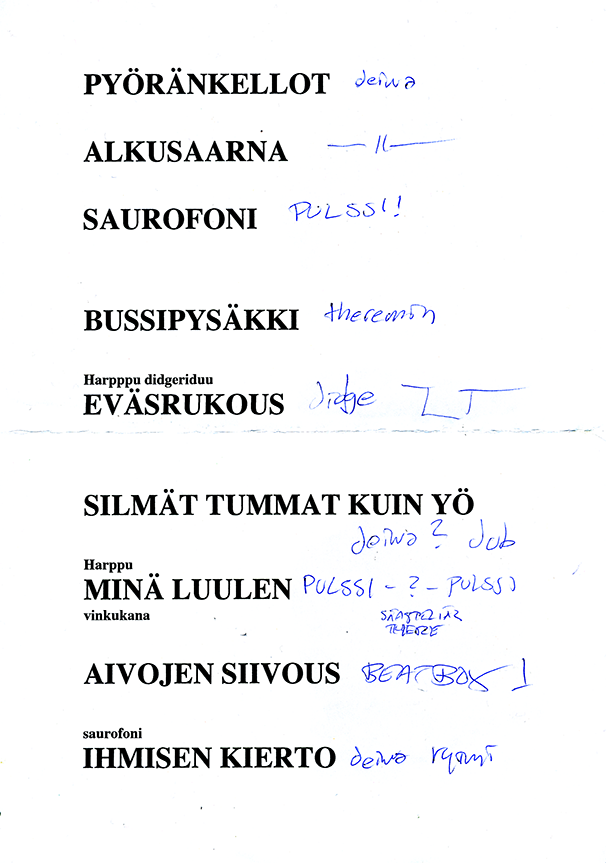 PYÖRÄNKELLOT deiwa
ALKUSAARNA —11—
SAUROFONI PULSSI!
BUSSIPYSÄKKI theremin
Harpppu didgeriduu
EVÄSRUKOUS didge
SILMÄT TUMMAT KUIN YÖ
deiwa? dub
Harppu
MINÄ LUULEN PULSSI - ? - PULSSI
vinkukana
AIVOJEN SIIVOUS BEATBOX!
saurofoni
IHMISEN KIERTO deiwa